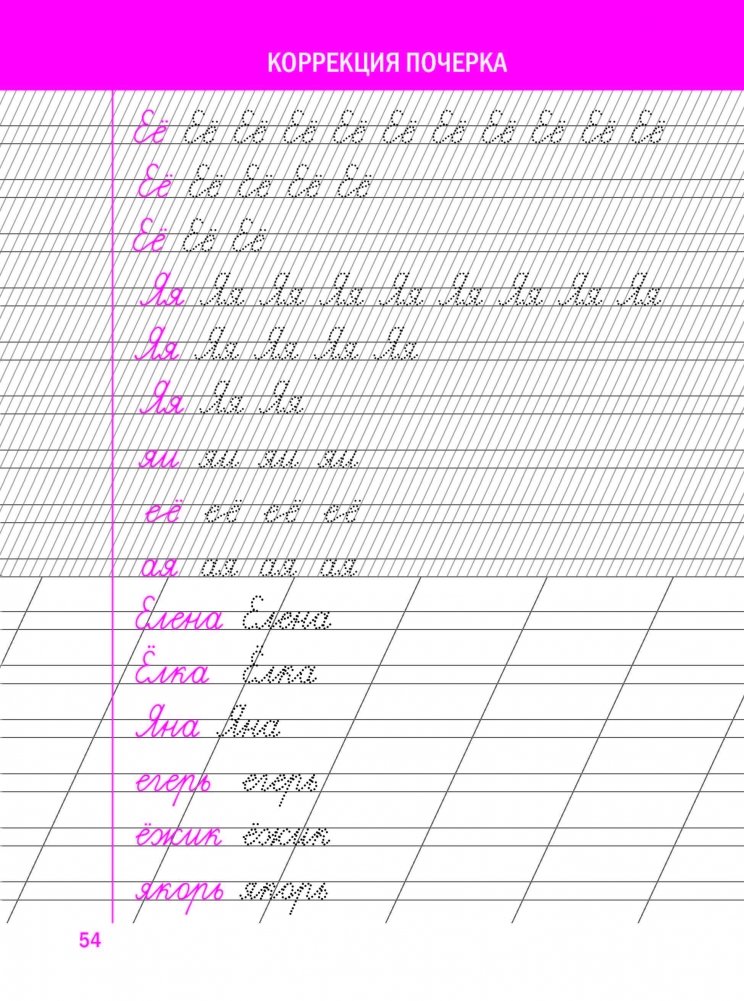 КОРРЕКЦИЯ ПОЧЕРКА
Её Её Её Её Её Её Её Её Её Её Её
Её Её Её Её Её
Её Её Её
Яя Яя Яя Яя Яя Яя Яя Яя Яя
Яя Яя Яя Яя Яя
Яя Яя Яя
яи яи яи яи
её её её её
ая ая ая ая
Елена Елена
Ёлка Ёлка
Яна Яна
егерь егерь
ёжик ёжик
якорь якорь
54